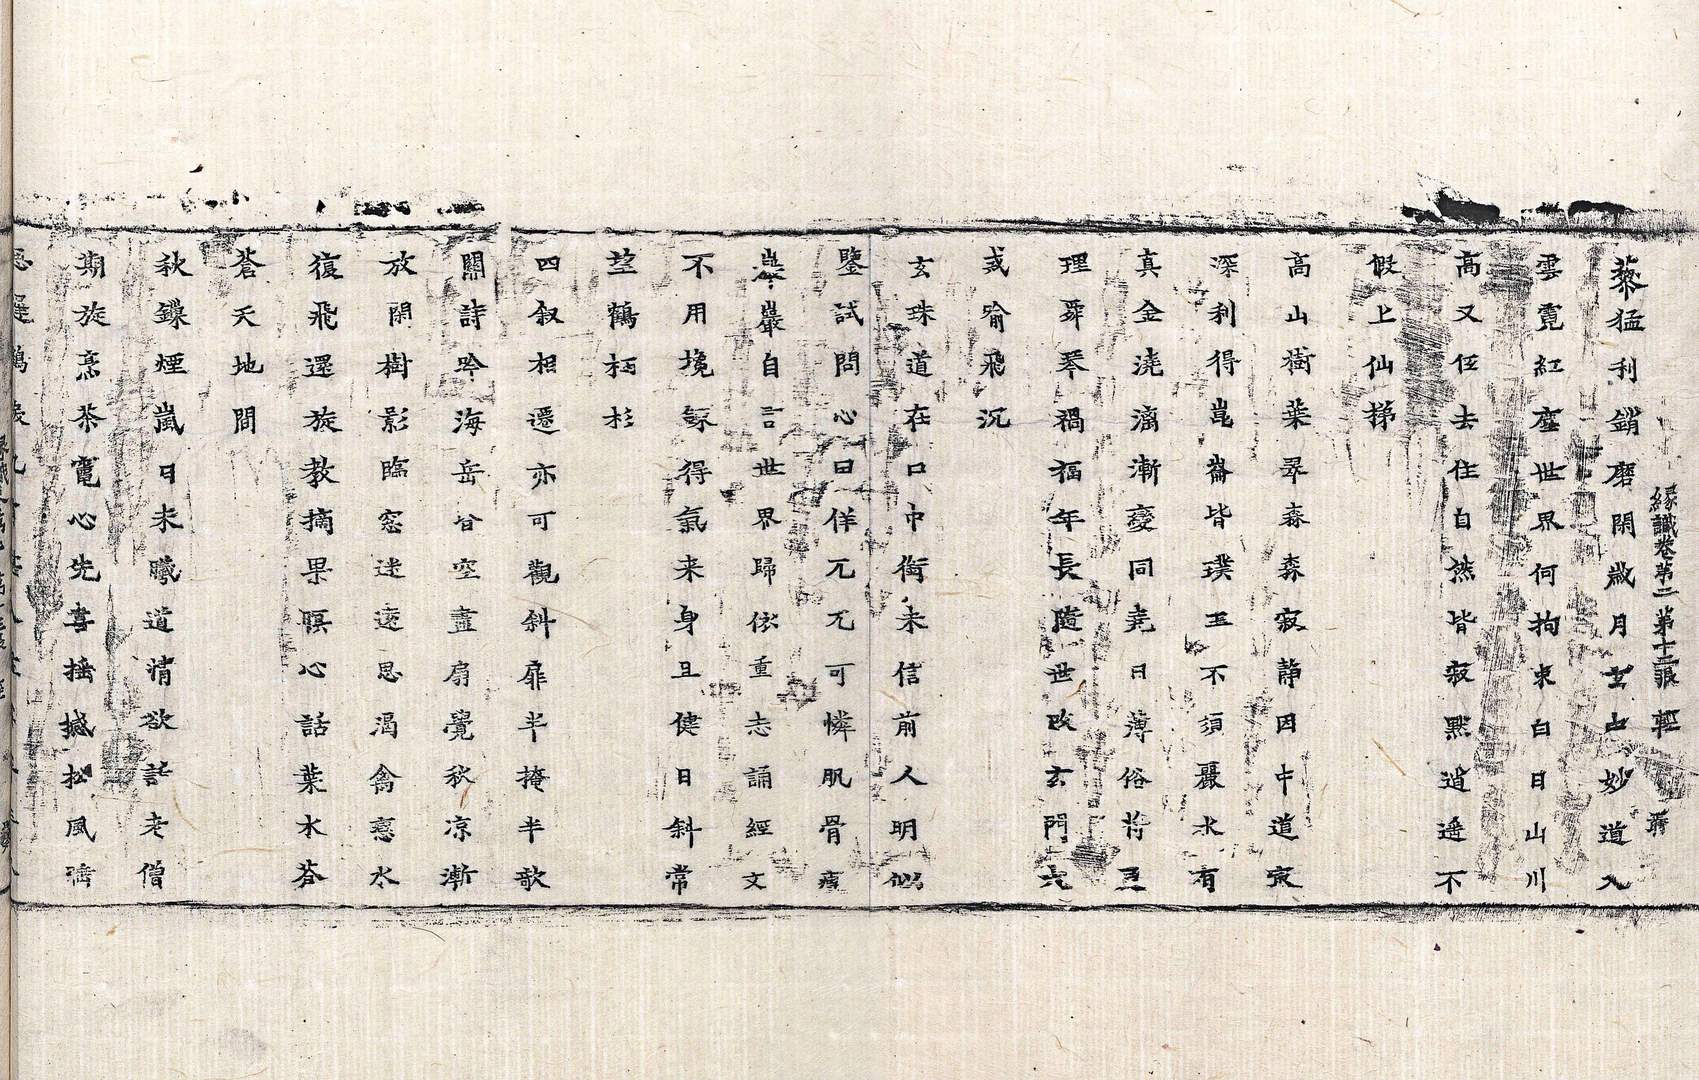 緣識卷第二 第十二張 輕
藜猛利銷磨閑歲月玄玄妙道入
雲霓紅塵世界何拘束白日山川
高又低去住自然皆寂默逍遥不
假上仙梯
高山樹葉翠森森寂靜因中道寂
深利得崑崙皆璞玉不須麗水有
真金澆漓漸變同堯日薄俗
理舜琴禍福年長隨世改玄門六
或喻飛沉
玄珠道在口中銜未信前人明似
鑒試問心曰佯兀兀可憐肌骨瘦
巖自言世界歸依重志誦經文
不用攙 得氣來身且健日斜常
墊鶴栖杉
四叙相遷亦可觀斜扉半掩半歌
關詩吟海岳皆空盡扇覺秋凉漸
放閑樹影臨窓迷遠思渴禽戀水
復飛還旋教摘果暝心話葉木苔
蒼天地間
秋鑠煙嵐日未曦道情欲話老僧
期旋烹茶竃心先喜揺撼松風